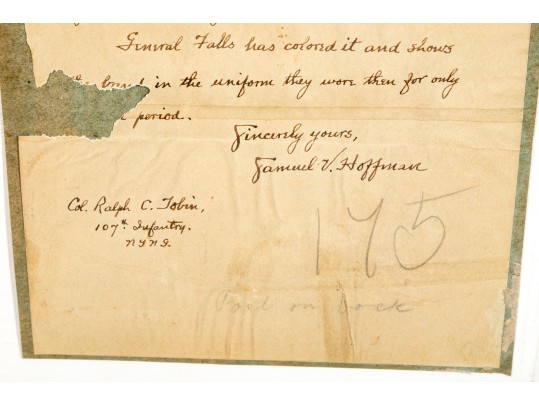 General Falls has colored it and shows
the band in the uniform they wore then for only
period.
Sincerely yours,
Samuel V. Hoffman
Col. Ralph C. Tobin,
107th Infantry.
N.Y.N.G.
175
on back